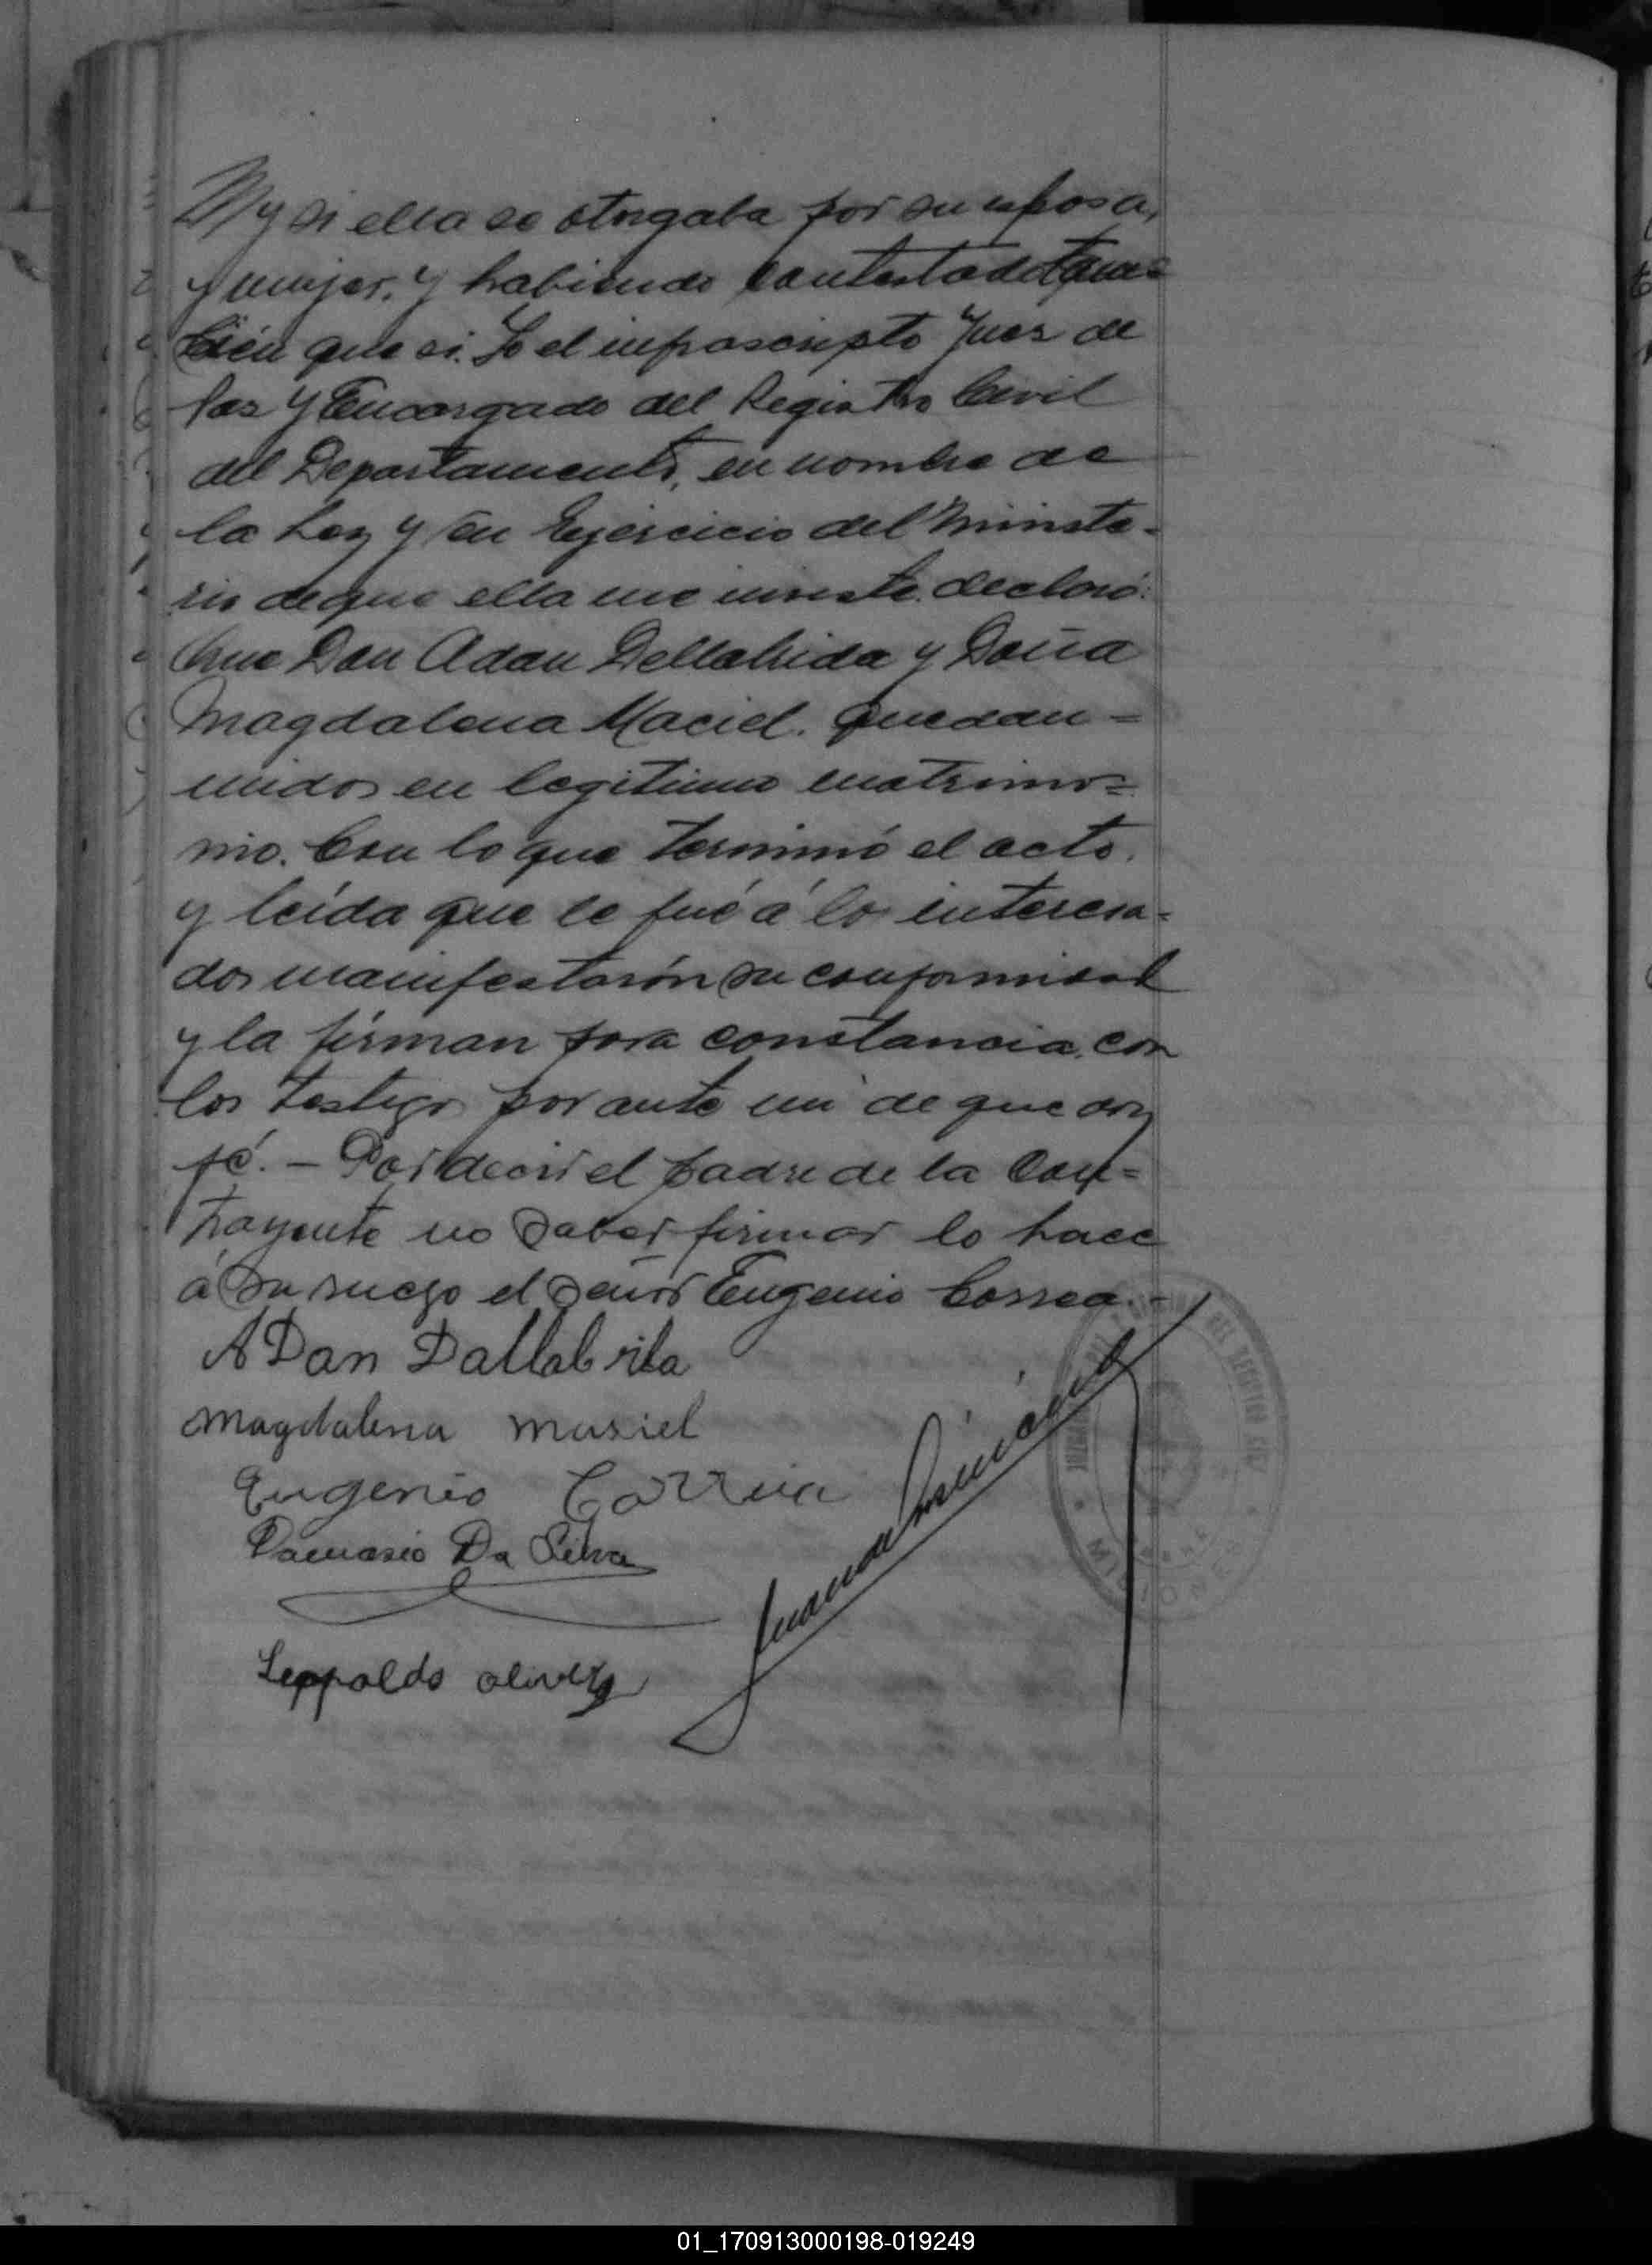 y si ella se otorgaba por su esposa,
y mujer, y habiendo contestado tam=
bién que si. Yo el infrascripto Juez de
Paz y Encargado del Registro Civil
del Departamento, en nombre de
la Ley y en Ejercicio del Ministe-
rio de que ella me inviste. declaró:
Que Don Adan Dellabrida y Doña
Magdalena Maciel. quedan=
unidos en legitimo matrimo=
nio. Con lo que terminó el acto.
y leída que le fué á los interesa=
dos manifestarón su conformidad
y la firman para constancia, con
los testigos por ante mi de que doy
fé. – Por decir el padre de la Con=
trayente no saber firmar lo hace
á su ruego el señor Eugenio Correa. -
ADan Dallabrila
Magdalena Masiel
Eugenio Corrua
Damasio Da Silva
Leopoldo olivera
MISIONES
01_170913000198-019249